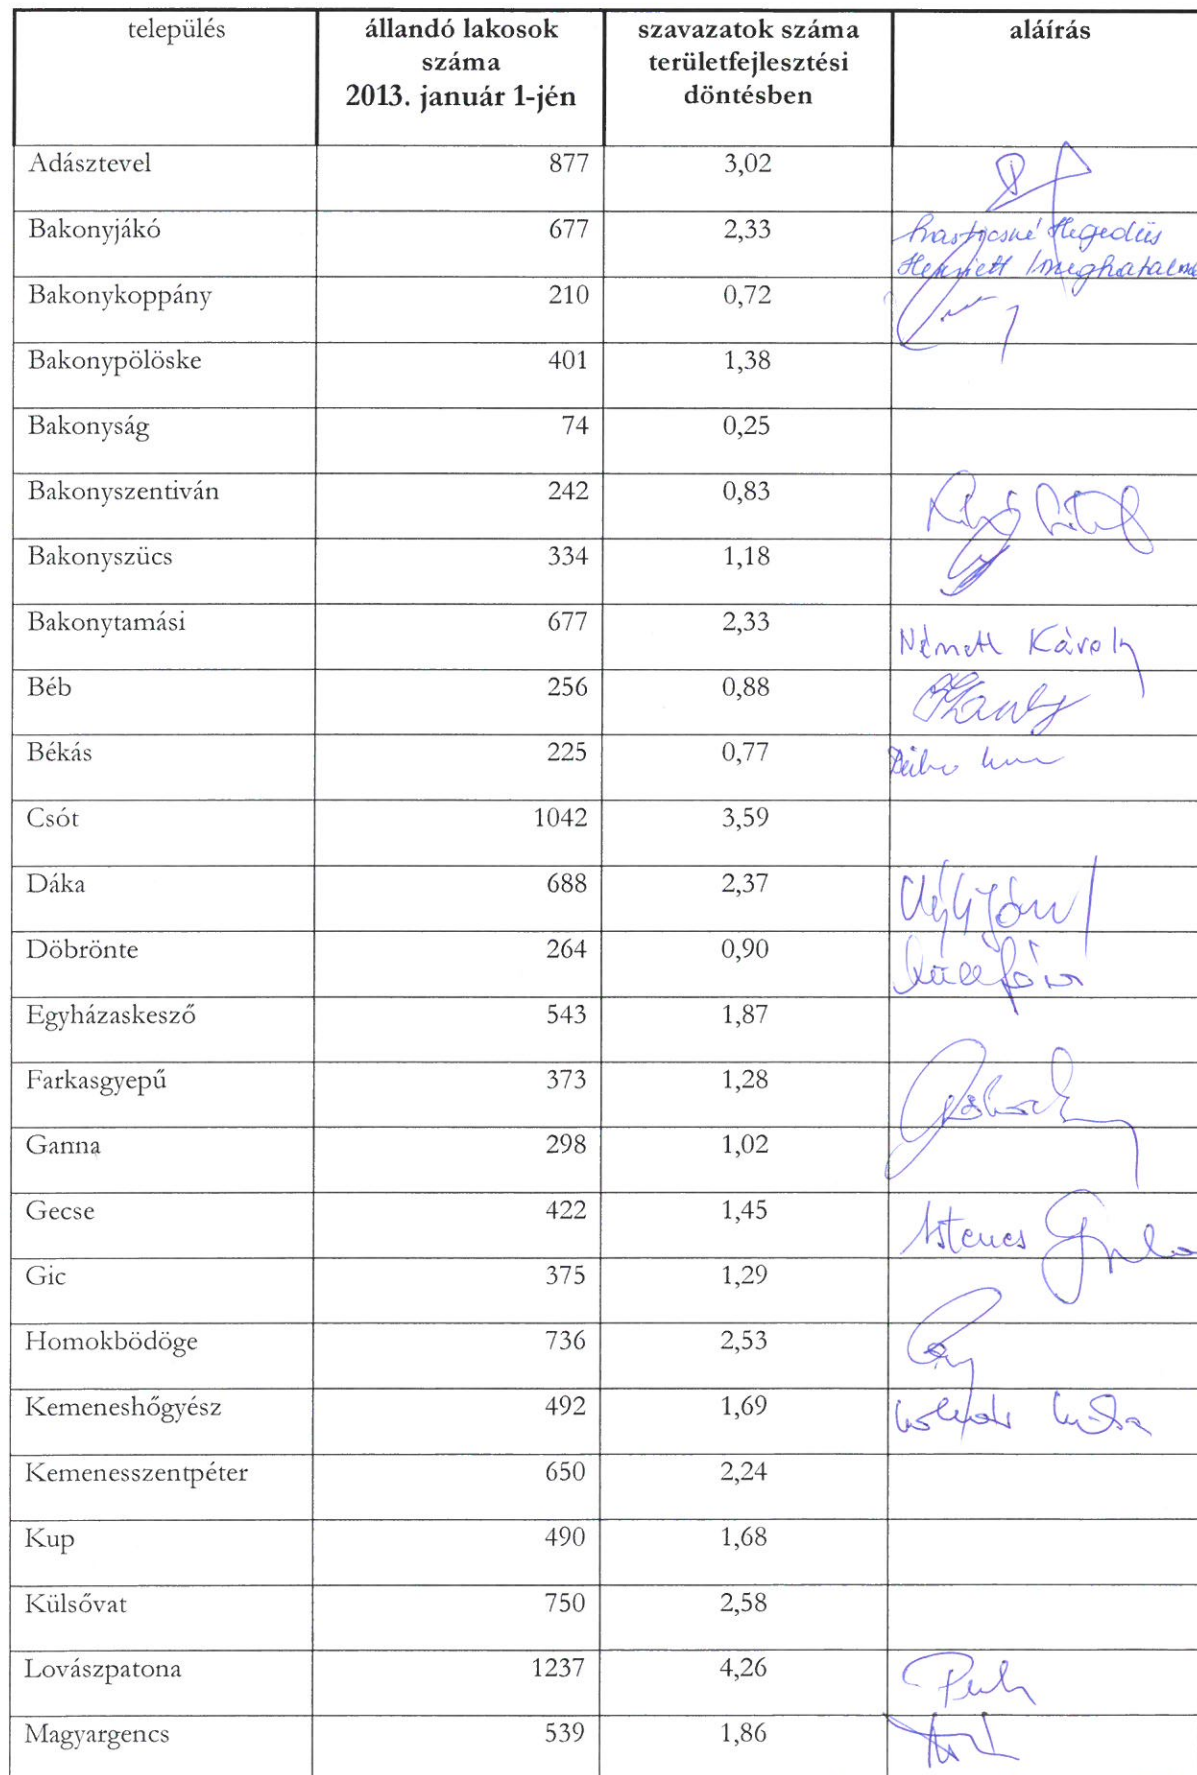 település állandó lakosok szavazatok száma aláírás
száma területfejlesztési
2013. január 1-jén döntésben
Adásztevel 877 3,02
Bakonyjákó 677 2,33 Hegedüs
Henriett
Bakonykoppány 210 0,72
Bakonypölöske 401 1,38
Bakonyság 74 0,25
Bakonyszentiván 242 0,83
Bakonyszücs 334 1,18
Bakonytamási 677 2,33 Németh Károly
Béb 256 0,88
Békás 225 0,77
Csót 1042 3,59
Dáka 688 2,37
Döbrönte 264 0,90
Egyházaskesző 543 1,87
Farkasgyepű 373 1,28
Ganna 298 1,02
Gecse 422 1,45
Gic 375 1,29
Homokbödöge 736 2,53
Kemeneshőgyész 492 1,69
Kemenesszentpéter 650 2,24
Kup 490 1,68
Külsővat 750 2,58
Lovászpatona 1237 4,26
Magyargencs 539 1,86